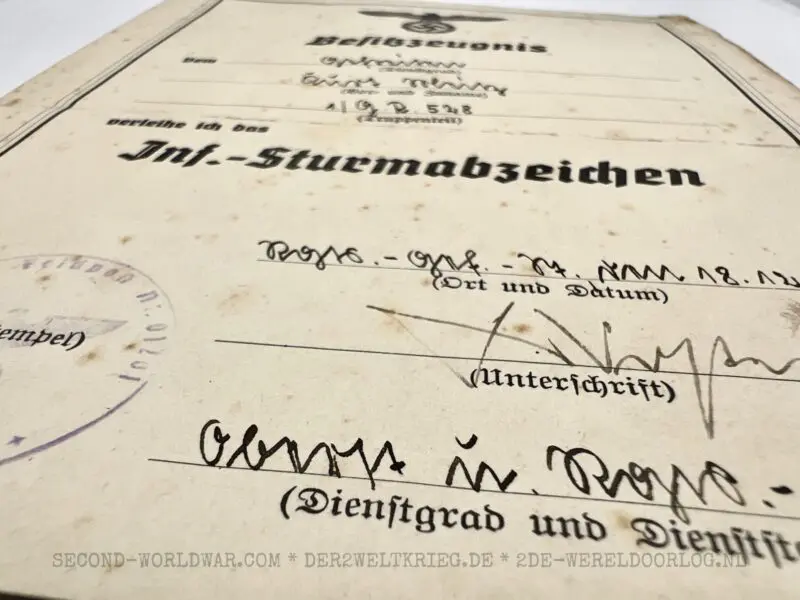 Besitzzeugnis
Dem
(Dienstgrad)
(Vor- und Zuname)
1/G.R. 528
(Truppenteil)
verleihe ich das
Inf.-Sturmabzeichen
Rgts. - Gef. - St., den 18.12
(Ort und Datum)
Feldpost Nr. 01710
empel)
(Unterschrift)
Oberst u. Rgts.-
(Dienstgrad und Dienstste
SECOND-WORLDWAR.COM * DER2WELTKRIEG.DE * 2DE-WERELDOORLOG.NL